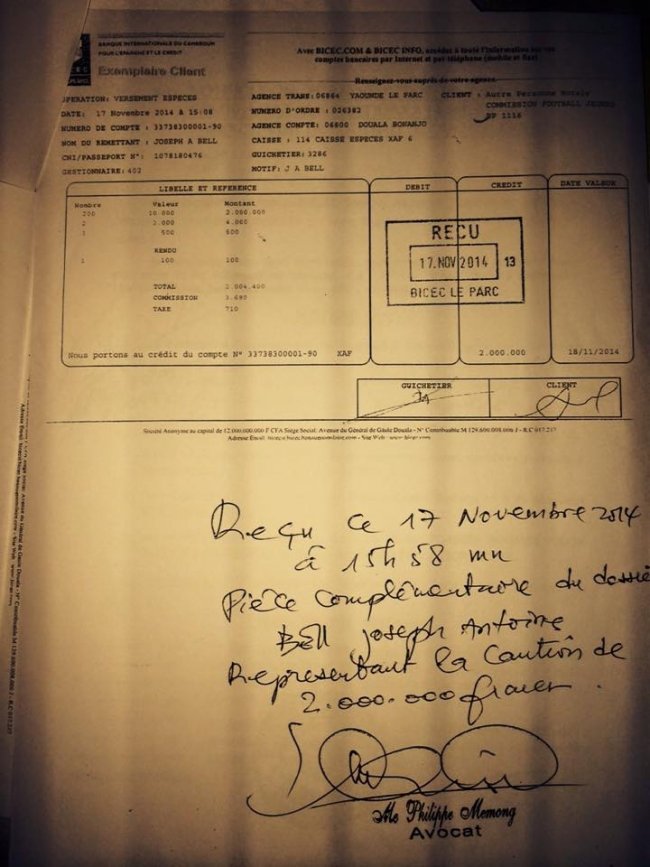 BANQUE INTERNATIONALE DU CAMEROUN
POUR L'EPARGNE ET LE CREDIT
Exemplaire Client
Avec BICEC.COM & BICEC INFO, accédez à toute l'information sur vos
comptes bancaires par Internet et par téléphone (mobile et fixe)
Renseignez-vous auprès de votre agence
OPERATION: VERSEMENT ESPECES
DATE: 17 Novembre 2014 à 15:08
NUMERO DE COMPTE : 33738300001-90
NOM DU REMETTANT : JOSEPH A BELL
CNI/PASSEPORT N°: 1078180476
GESTIONNAIRE: 402
AGENCE TRANS: 06864 YAOUNDE LE PARC
NUMERO D'ORDRE : 026382
AGENCE COMPTE: 06800 DOUALA BONANJO
CAISSE : 114 CAISSE ESPECES XAF 6
GUICHETIER: 3286
MOTIF: J A BELL
CLIENT : Autre Personne Morale
COMMISSION FOOTBALL
BP 1116
LIBELLE ET REFERENCE DEBIT CREDIT DATE VALEUR
Nombre Valeur Montant
200 10.000 2.000.000
2 2.000 4.000
1 500 500
RENDU
1 100 100
TOTAL 2.004.400
COMMISSION 3.690
TAXE 710
RECU
17.NOV 2014 13
BICEC LE PARC
Nous portons au crédit du compte N° 33738300001-90 XAF 2.000.000 18/11/2014
GUICHETIER CLIENT
Société Anonyme au capital de 12.000.000.000 F CFA Siège Social: Avenue du Général de Gaule Douala - N° Contribuable M
Reçu ce 17 Novembre 2014
à 15h 58 mn
Pièce complémentaire du dossie
Bell Joseph Antoine
Representant la Caution de
2.000.000 francs.
Me Philippe Memong
Avocat